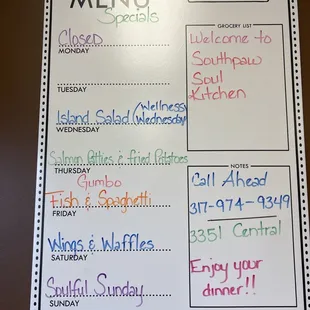 MENU
Specials
Closed
MONDAY
TUESDAY
Island Salad (Wellness Wednesday)
WEDNESDAY
Salmon Patties & Fried Potatoes
THURSDAY
Gumbo
Fish & Spaghetti
FRIDAY
Wings & Waffles
SATURDAY
Soulful Sunday
SUNDAY
GROCERY LIST
Welcome to
Southpaw
Soul
Kitchen
NOTES
Call Ahead
317-974-9349
3351 Central
Enjoy your
dinner!!